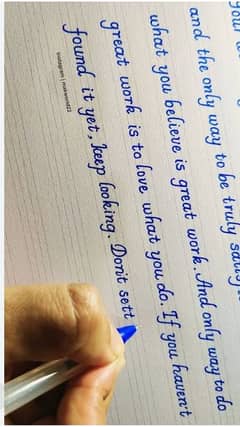 and the only way to be truly
what you believe is great work. And only way to do
great work is to love what you do. If you haven't
found it yet, keep looking. Don't sett